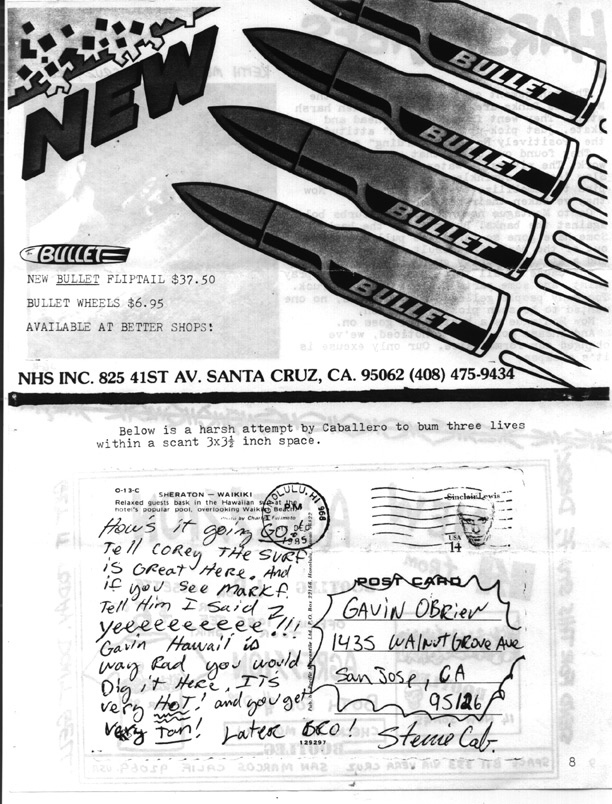 NEW
BULLET
BULLET
BULLET
BULLET
BULLET
NEW BULLET FLIPTAIL $37.50
BULLET WHEELS $6.95
AVAILABLE AT BETTER SHOPS!
NHS INC. 825 41ST AV. SANTA CRUZ, CA. 95062 (408) 475-9434
Below is a harsh attempt by Caballero to bum three lives
within a scant 3x3½ inch space.
O-13-C
SHERATON — WAIKIKI
Relaxed guests bask in the Hawaiian sun at the
hotel's popular pool, overlooking Waikiki Beach.
Photo by Charles
HONOLULU, HI 968
PM
DEC
1985
Sinclair Lewis
USA
14
How's it going GO
Tell COREY THE SURF
is GREAT HERE. And
if you see MARK f.
Tell Him I Said 2
yeeeeeeeeee!!!
Gavin Hawaii is
way Rad you would
Dig it Here. IT'S
very HOT! and you get
very Tan! Later BRO!
POST CARD
GAVIN OBRIEN
1435 WALNUT GROVE AVE
San Jose, CA
95126
Stevie Cab.
129297
8